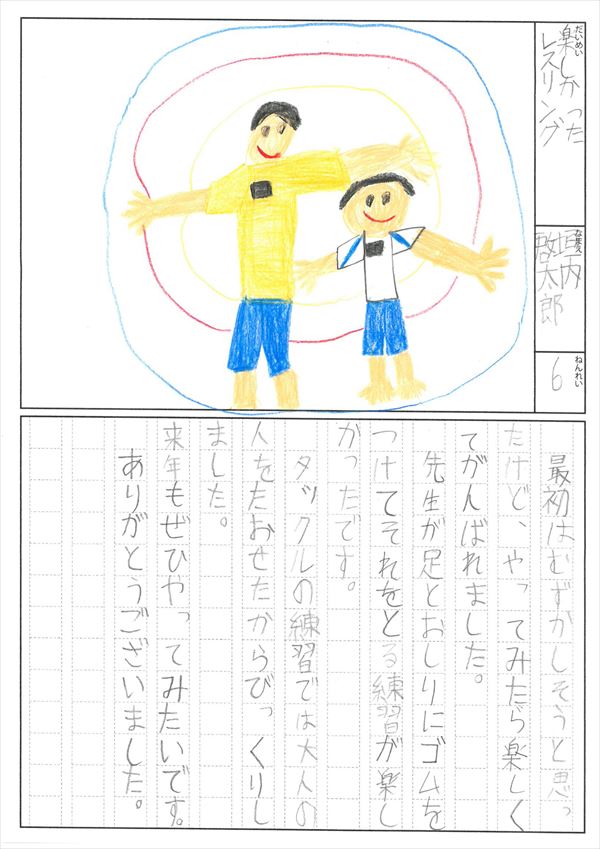 だいめい
楽しかった
レスリング
なまえ
垣内
啓太郎
ねんれい
6
最初はむずかしそうと思っ
たけど、やってみたら楽しく
てがんばれました。
先生が足とおしりにゴムを
つけてそれをとる練習が楽し
かったです。
タックルの練習では大人の
人をたおせたからびっくりし
ました。
来年もぜひやってみたいです。
ありがとうございました。